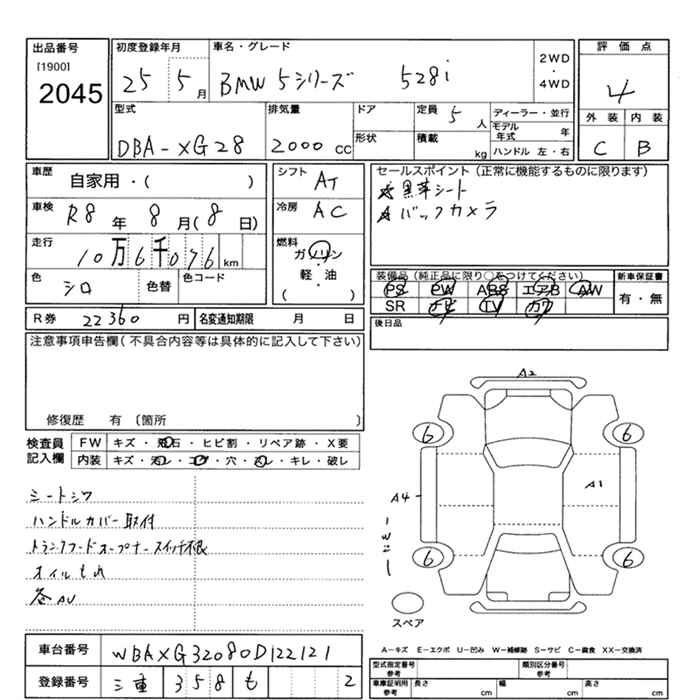 出品番号
[1900]
2045
初度登録年月
25 5月
車名・グレード
BMW 5シリーズ 528i
2WD
・
4WD
評価点
4
外装 内装
C B
型式
DBA-XG28
排気量
2000 cc
ドア
形状
定員 5人
積載 kg
ディーラー・並行
モデル年式 年
ハンドル 左・右
車歴
自家用・( )
車検 R8年 8月(8日)
走行
10万6千076km
色 シロ 色替 色コード
シフト AT
冷房 AC
燃料
ガソリン
軽・油
( )
セールスポイント(正常に機能するものに限ります)
黒革シート
バックカメラ
装備品(純正品に限り○をつけてください)
PS PW ABS エアB AW
SR ナビ TV カワ
新車保証書
有・無
後日品
R券 22360円 名変通知期限 月 日
注意事項申告欄(不具合内容等は具体的に記入して下さい)
修復歴 有 〔箇所 〕
検査員記入欄
FW キズ・飛石・ヒビ割・リペア跡・X要
内装 キズ・汚レ・コゲ・穴・スレ・キレ・破レ
シートシワ
ハンドルカバー取付
トランクフードオープナースイッチ不良
オイルもれ
各AU
A2
6 6
A1
A4
6 6
スペア
A-キズ E-エクボ U-凹み W-補修跡 S-サビ C-腐食 XX-交換済
車台番号 WBAXG32080D122121
登録番号 三重 358 も 2
型式指定番号 参考
類別区分番号 参考
車庫証明用 参考
長さ cm 幅 cm 高さ cm